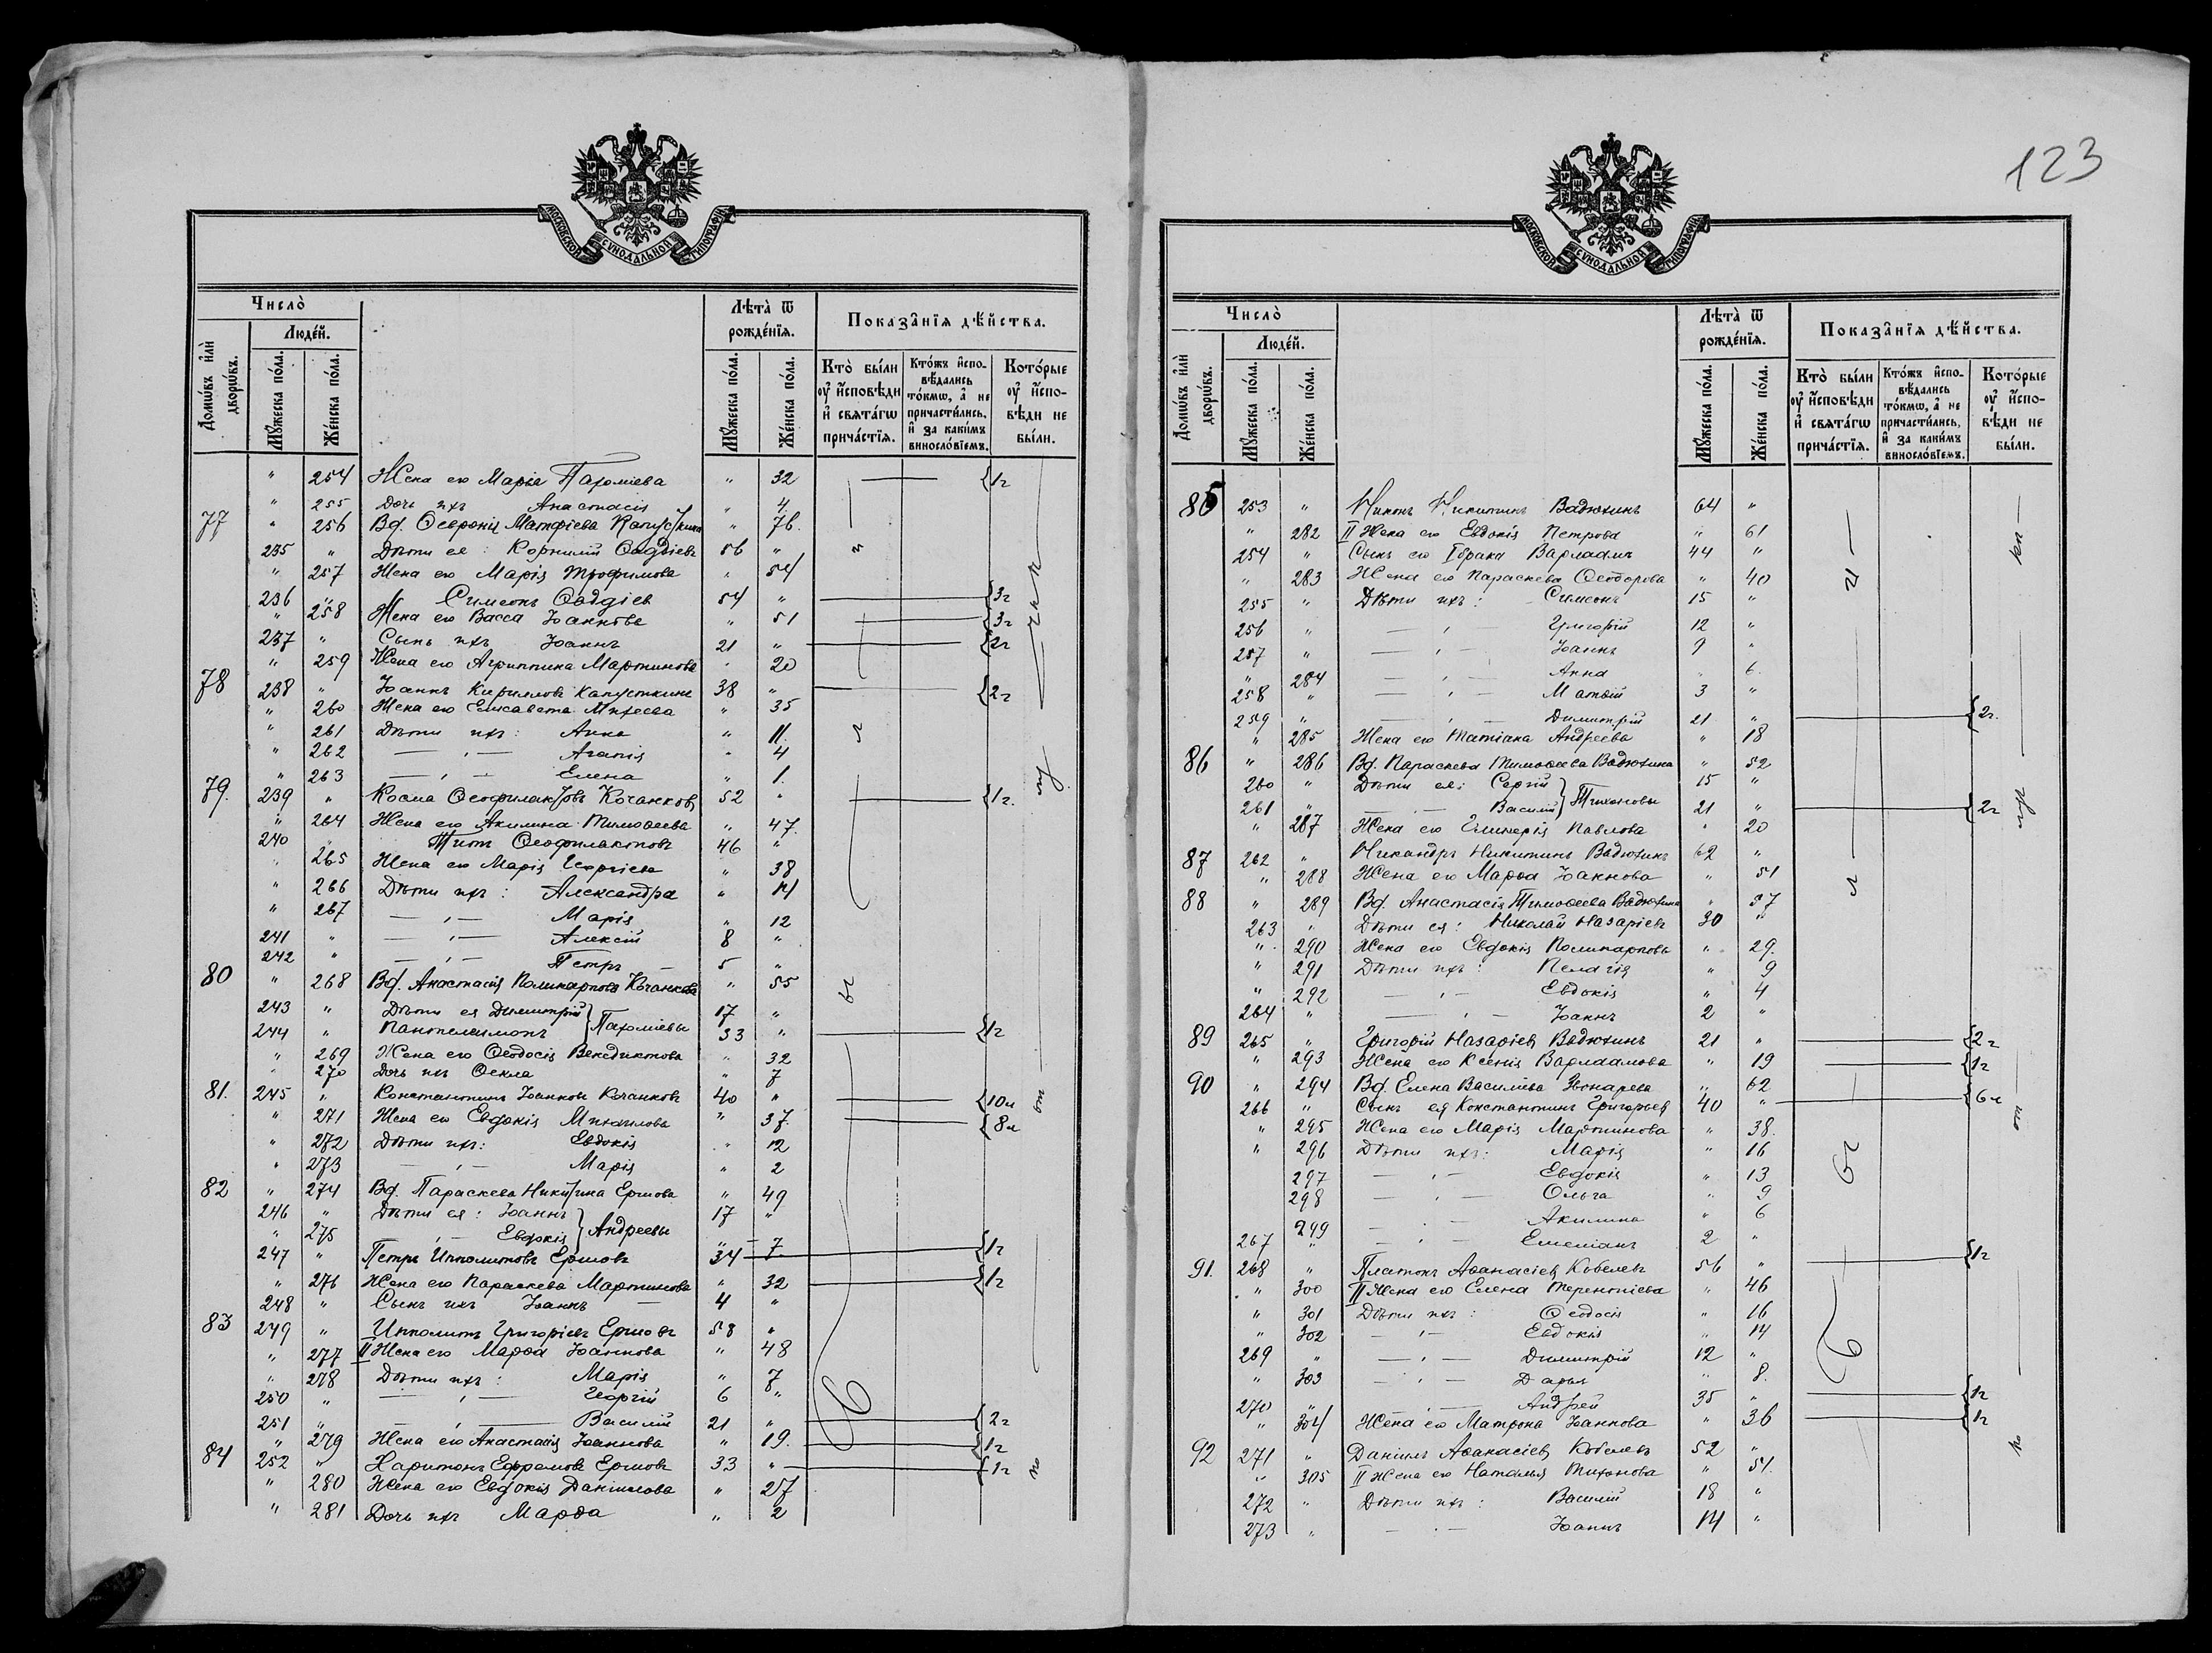 123
МОСКОВСКОЙ СѴНОДАЛЬНОЙ ТИПОГРАФІИ
Число̀
Домѡ́въ и҆лѝ дворѡ́въ.
Люде́й.
Мꙋ́жеска по́ла.
Же́нска по́ла.
Лѣ́та ѿ рожде́нїѧ.
Мꙋ́жеска по́ла.
Же́нска по́ла.
Показа̑нїѧ дѣ́йства.
Кто̀ бы́ли оу҆ и҆сповѣ́ди и҆ свѧта́гѡ прича́стїѧ.
Кто́жъ и҆спо-
вѣ́дались
то́кмѡ, а҆ не
причасти́лись,
и҆ за каки́мъ
винослі́вїемъ.
Кото́рые оу҆ и҆спо-
вѣ́ди не
бы́ли.
" 254 Жена его Марья Пахоміева " 32 {1г
" 255 Дочь ихъ Анастасія " 4
77 " 256 Вд. Ѳевронія Матфіева Капусткина " 76.
235 " Дѣти ея: Корнилій Фаддіевъ 56 "
" 257 Жена его Марія Трофимова " 54
236 " Симеонъ Фаддіев 54 " {3г
" 258 Жена его Васса Іоаннова " 51 {3г
237 " Сынъ ихъ Іоаннъ 21 " {2г
" 259 Жена его Агриппина Мартинова " 20
78 238 " Іоаннъ Кирилловъ Капусткинъ 38 " {2г
" 260 Жена его Елисавета Михеева " 35
" 261 Дѣти ихъ: Анна " 11.
" 262 — " — Агапія " 4
" 263 — " — Елена " 1.
79. 239 " Косма Ѳеофилактовъ Кочанковъ 52 " {1г.
" 264 Жена его Акилина Тимоѳеева " 47.
240 " Титъ Ѳеофилактовъ 46 "
" 265 Жена его Марія Георгіева " 38
" 266 Дѣти ихъ: Александра " 14
" 267 — " — Марія " 12
241 " — " — Алексій 8 "
242 " — " — Петръ 5 "
80 " 268 Вд. Анастасія Поликарпова Кочанкова " 55
243 " Дѣти ея Димитрій } Пахоміевы 17 "
244 " Пантелеимонъ 33 " {1г
" 269 Жена его Ѳеодосія Венедиктова " 32
" 270 Дочь ихъ Ѳекла " 7
81. 245 " Константинъ Іоаннов Кочанковъ 40 " {10л
" 271 Жена его Евдокія Михаилова " 37. {8л
" 272 Дѣти ихъ: Евдокія " 12
" 273 — " — Марія " 2
82 " 274 Вд. Параскева Никитина Ершова " 49
246 " Дѣти ея: Іоаннъ } Андреевы 17 "
" 275 " Евдокія " 7
247 " Петръ Ипполитовъ Ершовъ 34 {1г
" 276 Жена его Параскева Мартинова " 32 {1г
248 " Сынъ ихъ Іоаннъ 4 "
83 249 " Ипполитъ Григоріевъ Ершовъ 58 "
" 277 II Жена его Марѳа Іоаннова " 48
" 278 Дѣти ихъ: Марія " 7
250 " — " — Георгій 6 "
251 " — " — Василій 21 " {2г
" 279 Жена его Анастасія Іоаннова " 19. {1г
84 252 " Харитонъ Ефремовъ Ершовъ 33 " {1г
" 280 Жена его Евдокія Даниилова " 27
" 281 Дочь ихъ Марѳа " 2
МОСКОВСКОЙ СѴНОДАЛЬНОЙ ТИПОГРАФІИ
Число̀
Домѡ́въ и҆лѝ дворѡ́въ.
Люде́й.
Мꙋ́жеска по́ла.
Же́нска по́ла.
Лѣ́та ѿ рожде́нїѧ.
Мꙋ́жеска по́ла.
Же́нска по́ла.
Показа̑нїѧ дѣ́йства.
Кто̀ бы́ли оу҆ и҆сповѣ́ди и҆ свѧта́гѡ прича́стїѧ.
Кто́жъ и҆спо-
вѣ́дались
то́кмѡ, а҆ не
причасти́лись,
и҆ за каки́мъ
винослі́вїемъ.
Кото́рые оу҆ и҆спо-
вѣ́ди не
бы́ли.
85 253 " Никонъ Никитинъ Вадюхинъ 64 "
" 282 II Жена его Евдокія Петрова " 61
254 " Сынъ его I брака Варлаамъ 44 "
" 283 Жена его Параскева Ѳеодорова " 40
255 " Дѣти ихъ: Симеонъ 15 "
256 " — " — Григорій 12 "
257 " — " — Іоаннъ 9 "
" 284 — " — Анна " 6.
258 " — " — Матѳій 3 "
259 " — " — Димитрій 21 " {2г.
" 285 Жена его Татіана Андреева " 18
86 " 286 Вд. Параскева Тимоѳеева Вадюхина " 52
260 " Дѣти ея: Сергій } Тихоновы 15 "
261 " — Василій 21 " {2г
" 287 Жена его Гликерія Павлова " 20
87 262 " Никандръ Никитинъ Вадюхинъ 62 "
" 288 Жена его Марѳа Іоаннова " 51
88 " 289 Вд. Анастасія Тимоѳеева Вадюхина " 57
263 " Дѣти ея: Николай Назаріевъ 30 "
" 290 Жена его Евдокія Поликарпова " 29.
" 291 Дѣти ихъ: Пелагія " 9
" 292 — " — Евдокія " 4
264 " — " — Іоаннъ 2 "
89 265 " Григорій Назаріевъ Вадюхинъ 21 " {2г
" 293 Жена его Ксенія Варлаамова " 19 {1г
90 " 294 Вд. Елена Василіева Звонарева " 62
266 " Сынъ ея Константинъ Григорьев 40 " {6л
" 295 Жена его Марія Мартинова " 38.
" 296 Дѣти ихъ: Марія " 16
297 — " — Евдокія " 13
298 — " — Ольга " 9
299 — " — Акилина " 6
267 " — " — Емеліанъ 2 "
91. 268 " Платонъ Аѳанасіевъ Кобелевъ 56 " {1г
" 300 II Жена его Елена Терентіева " 46
" 301 Дѣти ихъ: Ѳеодосія " 16
" 302 — " — Евдокія " 14
269 " — " — Димитрій 12 "
" 303 — " — Дарья " 8.
270 " — " — Андрей 35 " {1г
" 304 Жена его Матрона Іоаннова " 36 {1г
92 271 " Даніилъ Аѳанасіевъ Кобелевъ 52 "
" 305 II Жена его Наталья Тихонова " 51.
272 " Дѣти ихъ: Василій 18 "
273 " — " — Іоаннъ 14 "